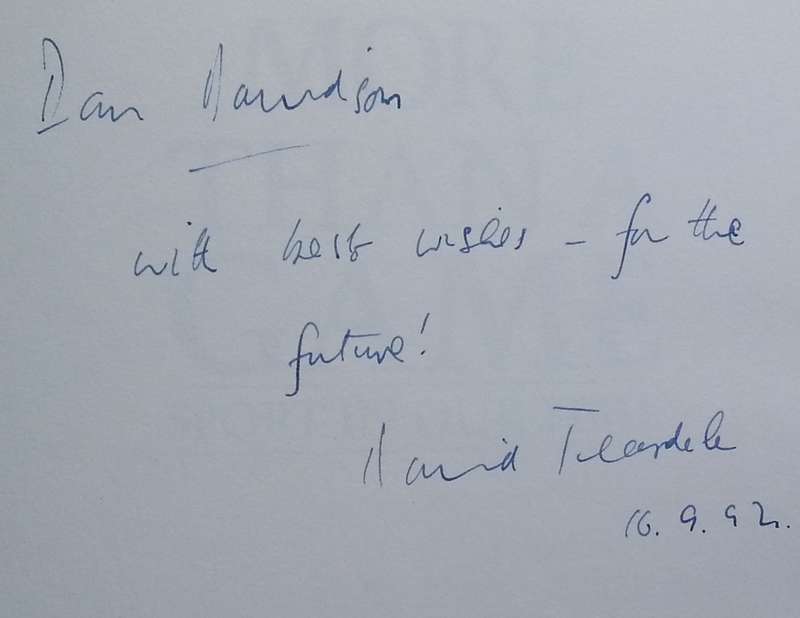 Dan Davidson
with best wishes – for the
future!
David Teasdale
16.9.92.